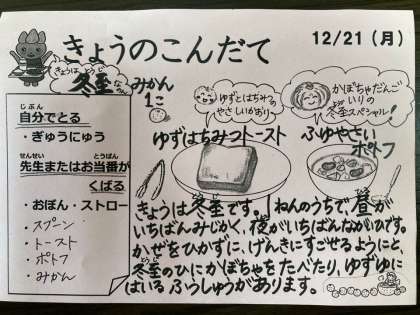 きょうのこんだて
12/21（月）
きょうは とうじ
冬至
みかん
1こ
ゆずとはちみつの
やさしいかおり
かぼちゃだんご
いりの
冬至スペシャル！
ゆずはちみつトースト
ふゆやさい
ポトフ
じぶん
自分でとる
・ぎゅうにゅう
せんせい とうばん
先生またはお当番が
くばる
・おぼん・ストロー
・スプーン
・トースト
・ポトフ
・みかん
きょうは冬至です。1ねんのうちで、昼が
いちばんみじかく、夜がいちばんながいひです。
かぜをひかずに、げんきにすごせるようにと、
冬至のひにかぼちゃをたべたり、ゆずゆに
はいるふうしゅうがあります。